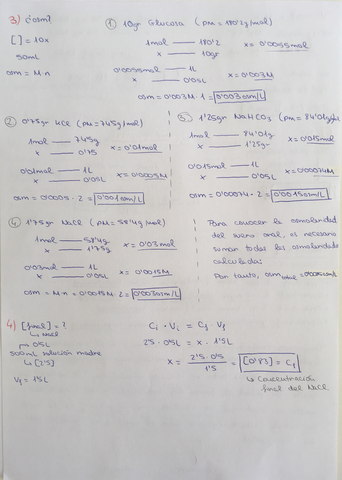 3) ¿osm?
[ ] = 10x
50ml
osm = M·n
1) 10gr Glucosa (pm = 180'2g/mol)
1mol —— 180'2
x —— 10gr
x = 0'0055mol
0'0055mol —— 1L
x —— 0'05L
x = 0'003M
osm = 0'003M · 1 = 0'003osm/L
2) 0'75gr KCl (pm = 74'5g/mol)
1mol —— 74'5g
x —— 0'75
x = 0'01mol
0'01mol —— 1L
x —— 0'05L
x = 0'0005M
osm = 0'0005 · 2 = 0'001osm/L
3) 1'25gr NaHCO3 (pm = 84'01g/mol)
1mol —— 84'01g
x —— 1'25gr
x = 0'015mol
0'015mol —— 1L
x —— 0'05L
x = 0'00074M
osm = 0'00074 · 2 = 0'0015osm/L
4) 1'75gr NaCl (pm = 58'4g/mol)
1mol —— 58'4g
x —— 1'75g
x = 0'03mol
0'03mol —— 1L
x —— 0'05L
x = 0'0015M
osm = M·n = 0'0015M · 2 = 0'003osm/L
Para conocer la osmolaridad
del suero oral, es necesario
suman todas las osmolaridades
calculadas:
Por tanto, osm
4) [final] = ?
NaCl
0'5L
500mL solución madre
[2'5]
Vf = 1'5L
Ci · Vi = Cf · Vf
2'5 · 0'5L = x · 1'5L
x = 2'5 · 0'5 / 1'5 = [0'83] = Cf
Concentración
final del NaCl